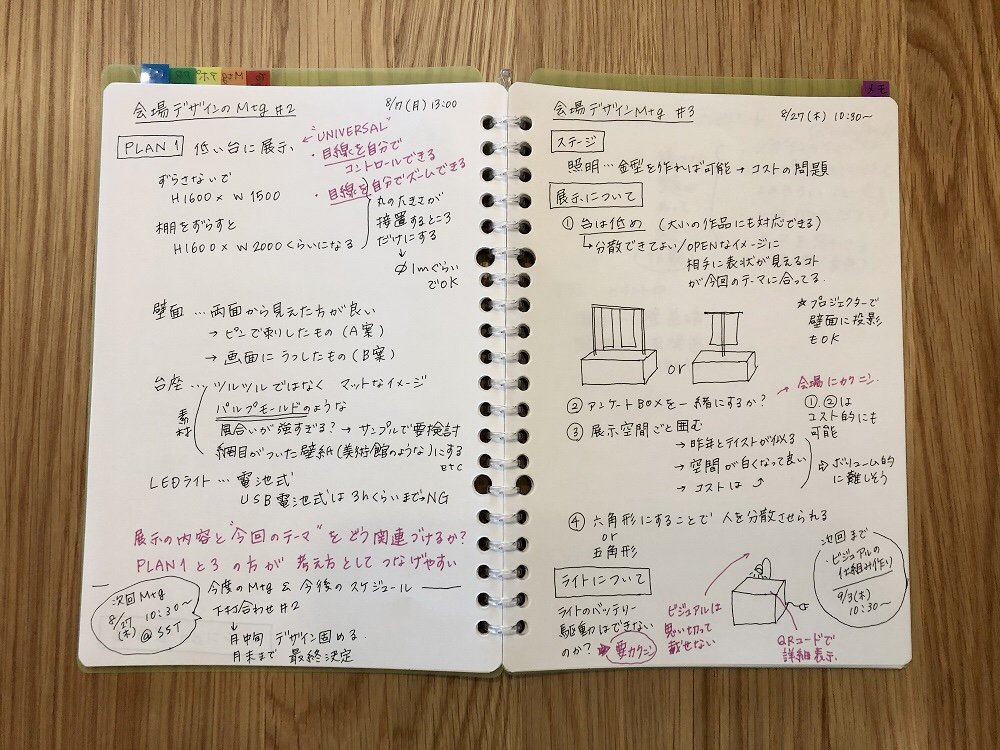 Mtg
アポ
メモ
会場デザインのMtg #2
8/7(月) 13:00
PLAN 1 低い台に展示、
"UNIVERSAL"
・目線を自分で
コントロールできる
・目線を自分でズームできる
ずらさないで
H1600 × W1500
棚をずらすと
H1600 × W2000くらいになる
丸の大きさが
接置するところ
だけにする
↓
∅1mぐらい
でOK
壁面 … 両面から見えた方が良い
→ ピンで刺したもの (A案)
→ 画面にうつしたもの (B案)
台座 … ツルツルではなく マットなイメージ
素材
パルプモールドのような
風合いが強すぎる? → サンプルで要検討
網目がついた壁紙(美術館のような)にする
etc
LEDライト … 電池式
USB電池式は3hくらいまで→NG
展示の内容と"今回のテーマ"をどう関連づけるか?
PLAN1と3の方が 考え方としてつなげやすい
次回Mtg
8/27(木) 10:30〜
@SST
今度のMtg & 今後のスケジュール
下打合わせ#2
↓
月中旬 デザイン固める.
月末まで 最終決定
会場デザインMtg #3
8/27(木) 10:30〜
ステージ
照明 … 金型を作れば可能 → コストの問題
展示について
① 台は低め (大いの作品にも対応できる)
↳分散できてよい/OPENなイメージに
相手に表状が見えるコト
が今回のテーマに合ってる.
★プロジェクターで
壁面に投影
もOK
or
→会場にカクニン
② アンケートBOXを一緒にするか?
①②は
コスト的にも
可能
③ 展示空間ごと囲む
→ 昨年とテイストが似る
→ 空間が白くなって良い
→ コストは
⇨ ボリューム的
に難しそう
④ 六角形にすることで 人を分散させられる
or
五角形
次回まで
・ビジュアルの
仕組み作り
9/3(木)
10:30〜
ライトについて
ライトのバッテリー
駆動はできない
のか? ★要カクニン
ビジュアルは
思い切って
載せない
QRコードで
詳細表示、